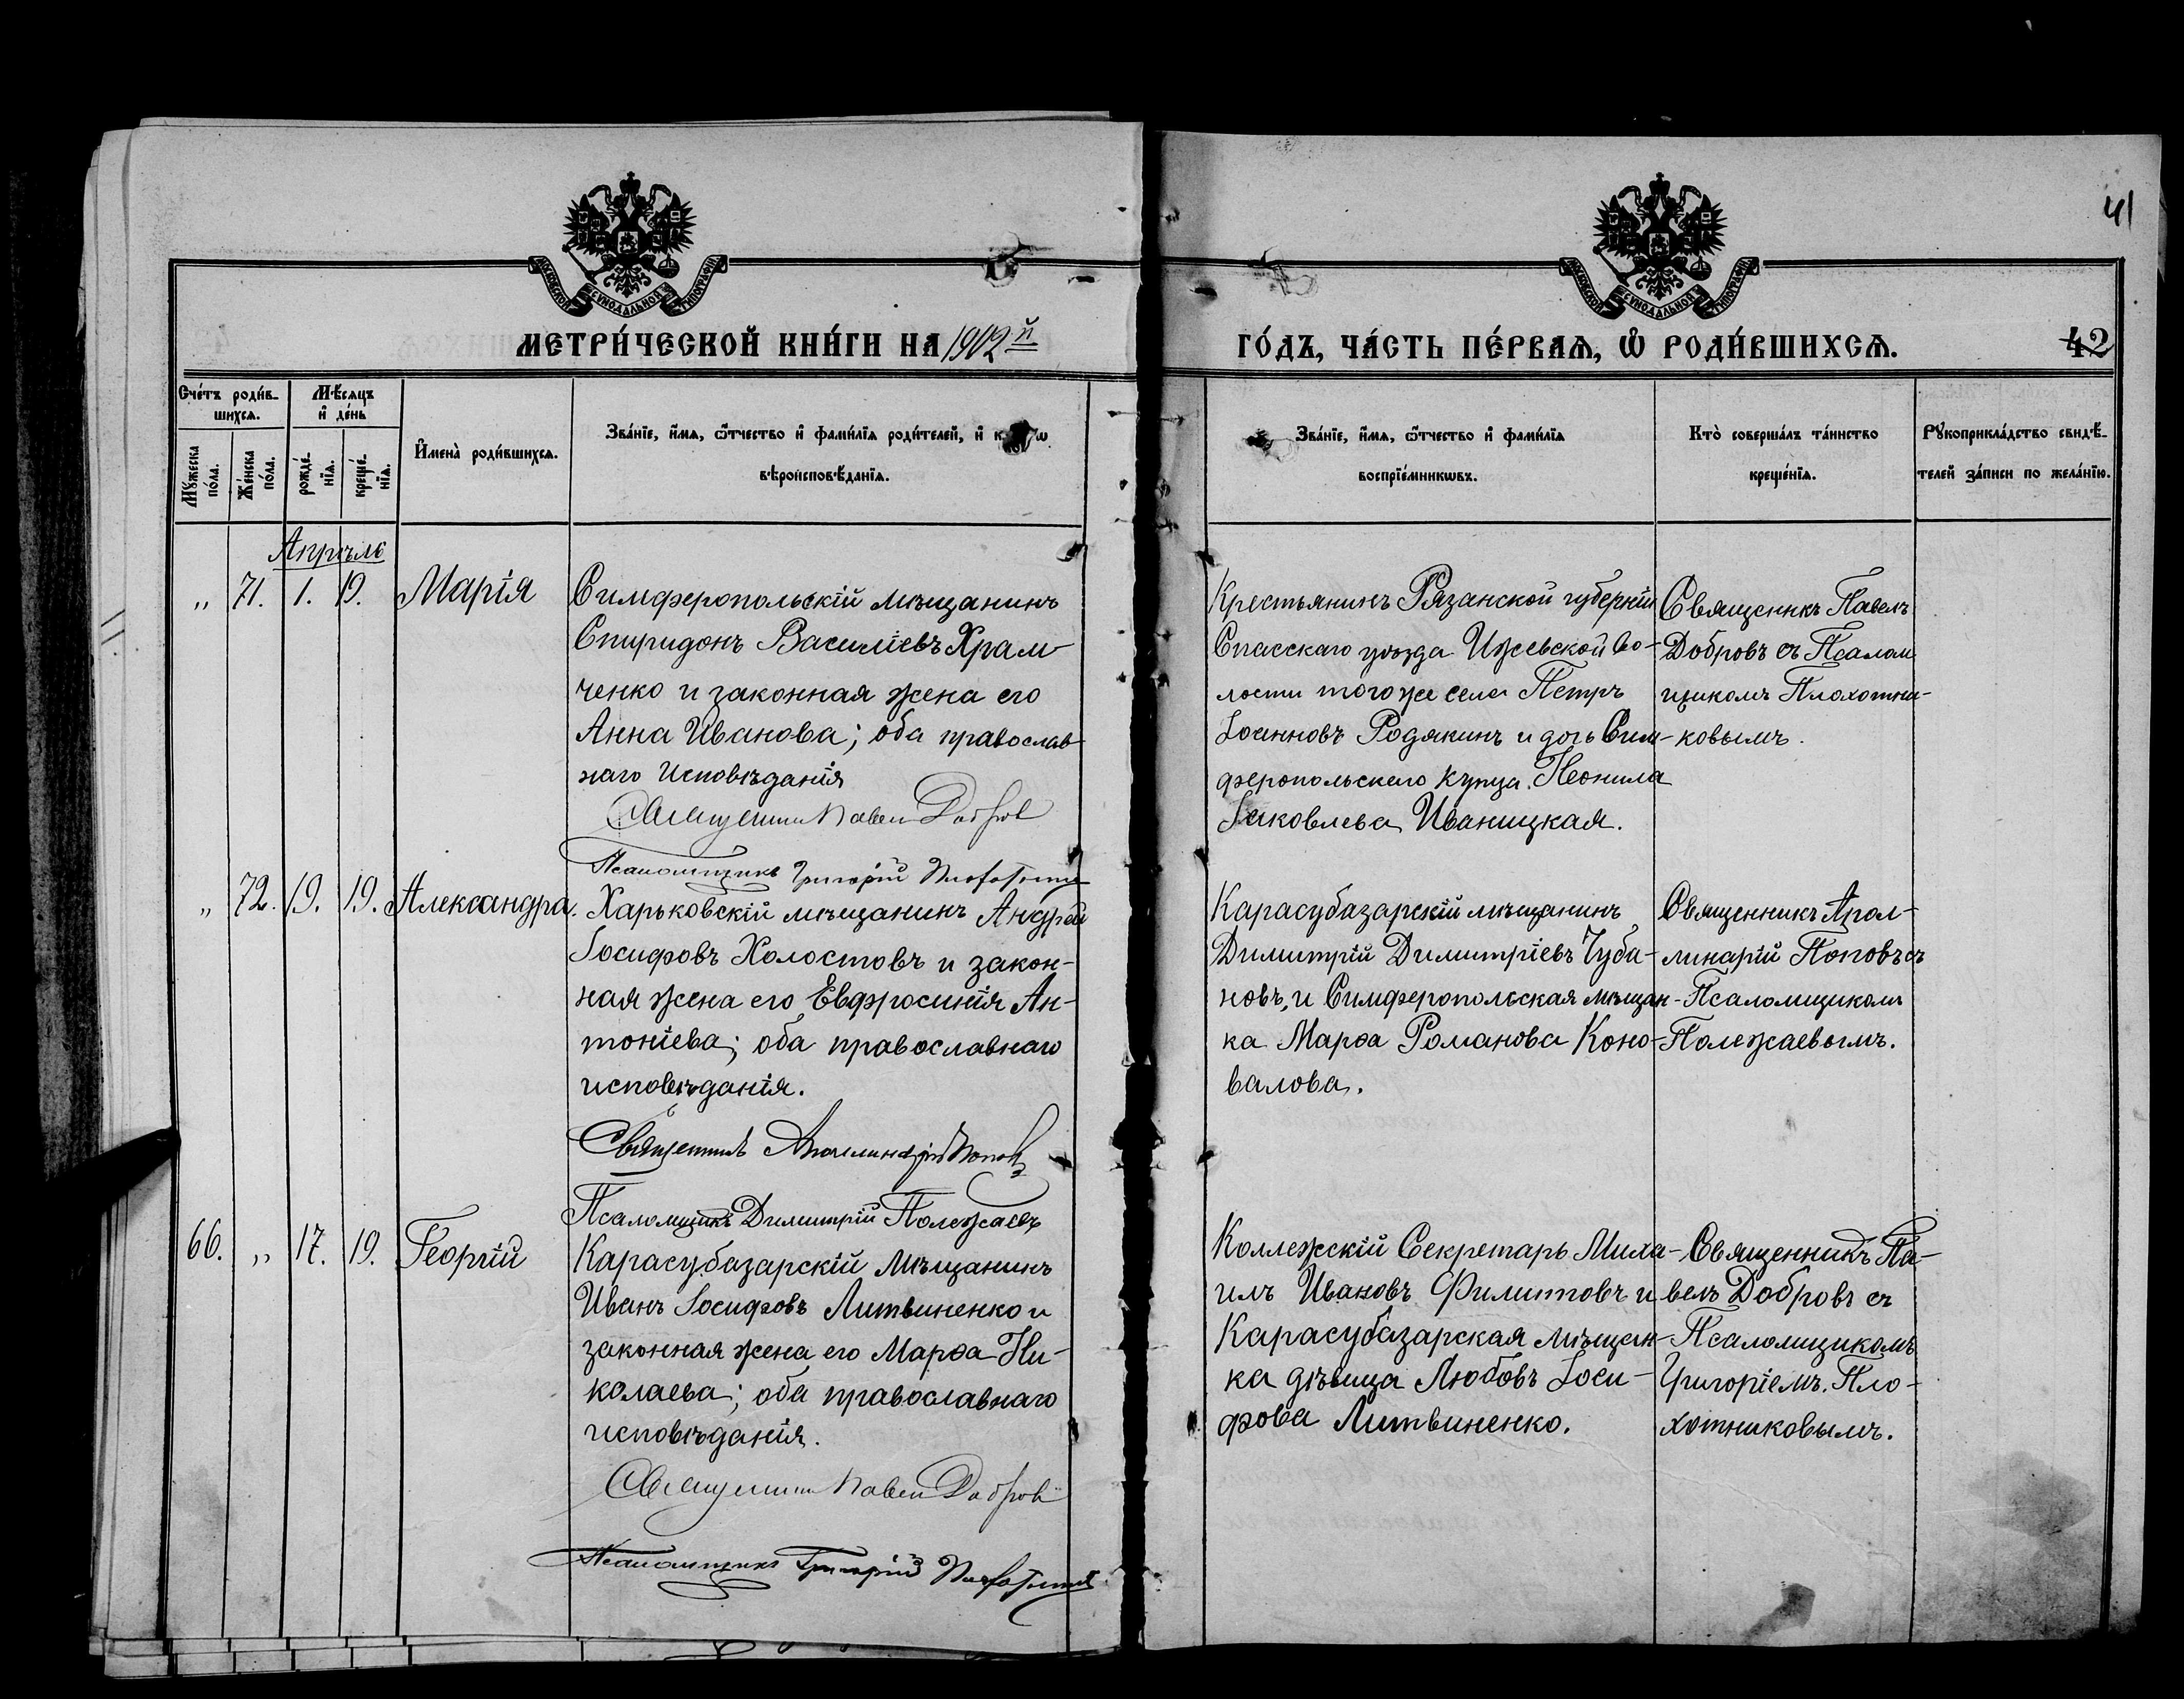 41
МОСКОВСКОЙ СѴНОДАЛЬНОЙ ТИПОГРАФІИ
МОСКОВСКОЙ СѴНОДАЛЬНОЙ ТИПОГРАФІИ
МЕТРИ́ЧЕСКОЙ КНИ́ГИ НА 1902й
ГО́ДЪ, ЧА́СТЬ ПЕ́РВАѦ, Ѡ҆ РОДИ́ВШИХСѦ.
42
Сче́тъ роди́в-
шихсѧ.
Мѣ́сяцъ
и҆ де́нь
Мꙋ́жеска
по́ла.
Же́нска
по́ла.
рожде́-
нїѧ.
креще́-
нїѧ.
И҆мена̀ роди́вшихсѧ.
Зва́нїе, и҆́мѧ, ѻ҆́тчество и҆ фами́лїѧ роди́телей, и҆
вѣроисповѣ́данїѧ.
Зва́нїе, и҆́мѧ, ѻ҆́тчество и҆ фами́лїѧ
воспрїе́мникѡвъ.
Кто̀ соверша́лъ та́инство
креще́нїѧ.
Рꙋкоприкла́дство свидѣ́-
телей за́писи по жела́нїю.
Апрѣль
„ 71. 1. 19. Марія
Симферопольскій мѣщанинъ
Спиридонъ Василіевъ Храм-
ченко и законная жена его
Анна Иванова; оба православ-
наго исповѣданія
Священникъ Павелъ Добровъ
Псаломщикъ Григорій Плохотниковъ
Крестьянинъ Рязанской губерніи
Спасскаго уѣзда Ижевской во-
лости того же села Петръ
Іоанновъ Родякинъ и дочь Сим-
феропольскаго купца Неонила
Іаковлева Иваницкая.
Священикъ Павелъ
Добровъ съ Псалом
щикомъ Плохотни-
ковымъ.
„ 72. 19. 19. Александра.
Харьковскій мѣщанинъ Андрей
Іосифовъ Холостовъ и закон-
ная жена его Евфросинія Ан-
тоніева; оба православнаго
исповѣданія.
Священникъ Аполлинарій Поповъ
Псаломщикъ Димитрій Полежаевъ
Карасубазарскій мѣщанинъ
Димитрій Димитріевъ Чуба-
новъ, и Симферопольская мѣщан-
ка Марѳа Романова Коно-
валова.
Священникъ Апол-
линарій Поповъ съ
Псаломщикомъ
Полежаевымъ.
66. „ 17. 19. Георгій
Карасубазарскій мѣщанинъ
Иванъ Іосифовъ Литвиненко и
законная жена его Марѳа Ни-
колаева; оба православнаго
исповѣданія.
Священникъ Павелъ Добровъ
Псаломщикъ Григорій Плохотниковъ
Коллежскій Секретарь Миха-
илъ Ивановъ Филиповъ и
Карасубазарская мѣщан-
ка дѣвица Любовь Іоси-
фова Литвиненко.
Священникъ Па-
велъ Добровъ съ
Псаломщикомъ
Григоріемъ Пло-
хотниковымъ.